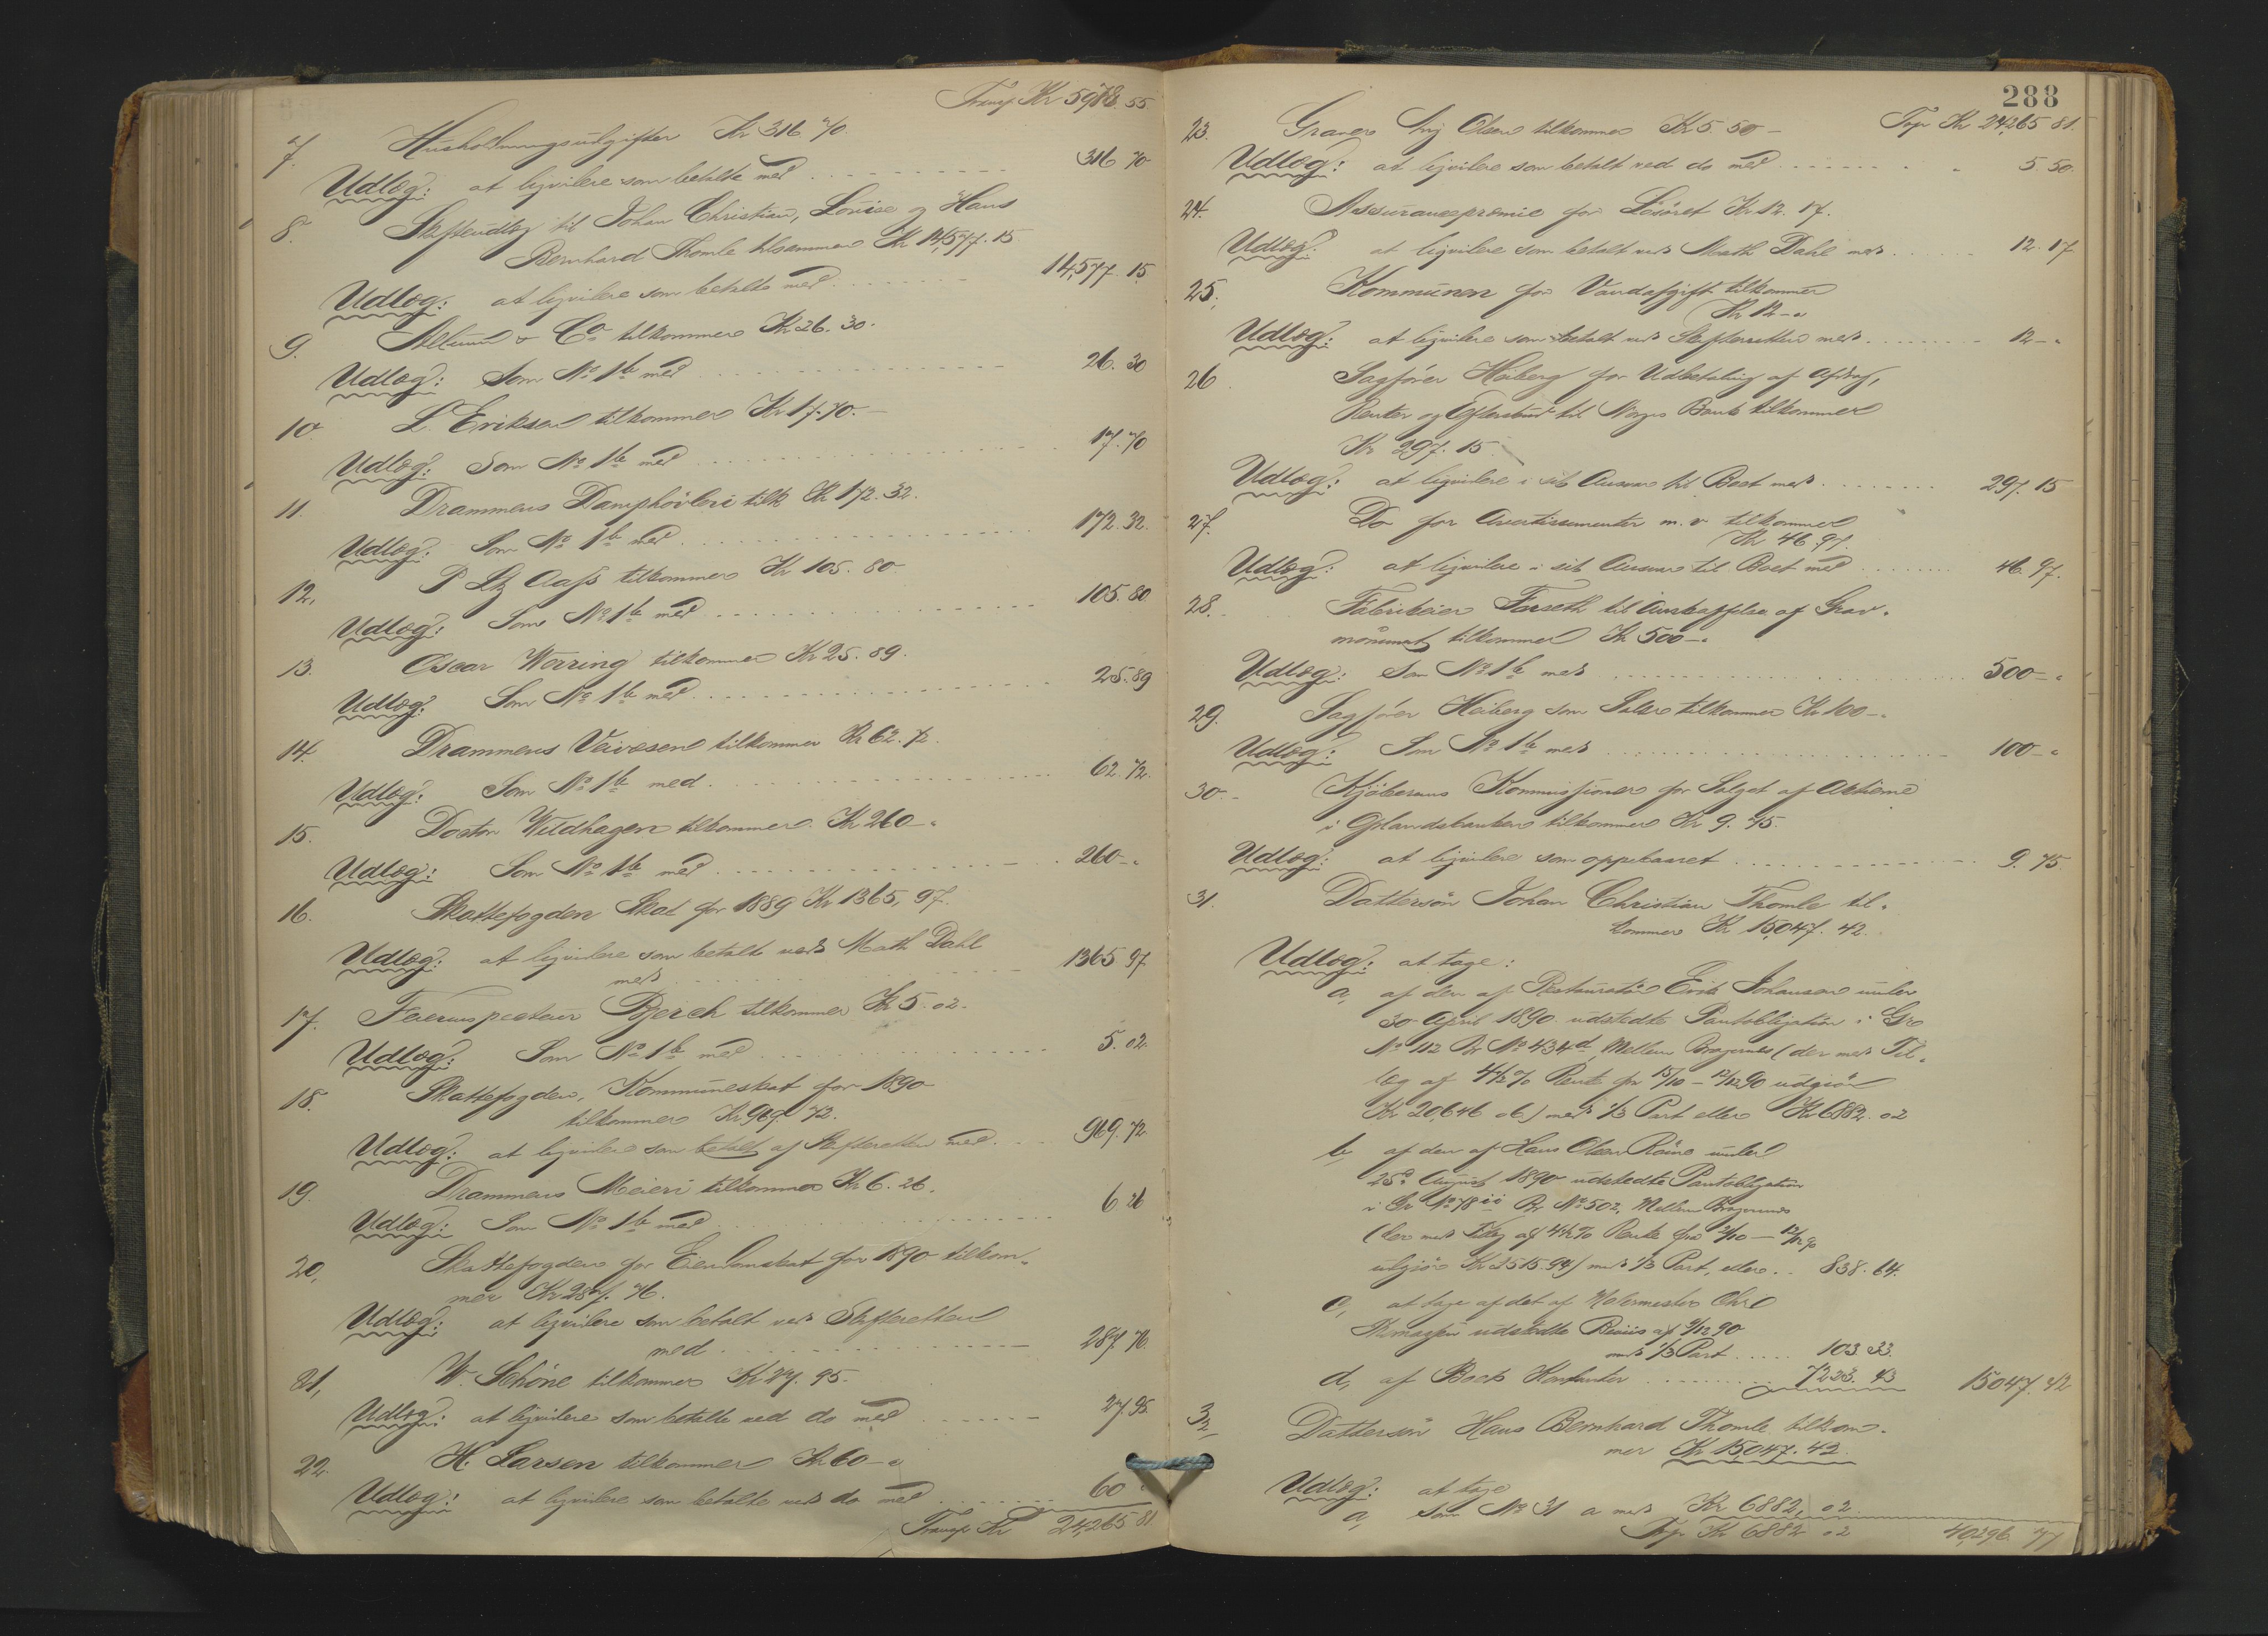 Transf Kr 5978. 55
7. Husholdningsudgifter Kr 316 70
Udlæg: at ligvidere som betalte med 316 70
8. Skifteudlæg til Johan Christian, Louise og Hans
Bernhard Thomle tilsammen Kr 14,577. 15
Udlæg: at ligvidere som betalte med 14,577. 15
9. & Co tilkommer Kr 26. 30.
Udlæg: Som No 1 b med 26. 30
10. L. Eriksen tilkommer Kr 17. 70.
Udlæg: Som No 1 b med 17. 70
11. Drammens Damphövleri tilk Kr 172. 32.
Udlæg: Som No 1 b med 172. 32.
12. P Ltz Aass tilkommer Kr 105. 80
Udlæg: Som No 1 b med 105. 80
13. Oscar Wærring tilkommer Kr 25. 89.
Udlæg: Som No 1 b med 25. 89
14. Drammens Veivæsen tilkommer Kr 62. 72.
Udlæg: Som No 1 b med 62. 72.
15. Doctor Wildhagen tilkommer Kr 260 -
Udlæg: Som No 1 b med 260 -
16. Skattefogden Skat for 1889 Kr 1365, 97.
Udlæg: at ligvidere som betalte ved Math Dahl
med 1365 97
17. Feierinspecteur Bjerch tilkommer Kr 5. 02.
Udlæg: Som No 1 b med 5. 02.
18. Skattefogden, Kommuneskat for 1890
tilkommer Kr 969 72.
Udlæg: at ligvidere som betalt af Skifteretten med 969. 72
19. Drammens Meieri tilkommer Kr 6. 26.
Udlæg: Som No 1 b med 6 26
20, Skattefogden for Eiendomskat for 1890 tilkom-
mer Kr 287. 76.
Udlæg: at ligvidere som betalt ved Skifteretten
med 287. 76.
21, W. Schöne tilkommer Kr 27. 95.
Udlæg: at ligvidere som betalte ved do med 27. 95.
22. H. Larsen tilkommer Kr 60 -
Udlæg: at ligvidere som betalte ved do med 60
Transp Kr 24,265 81.
288
Tsp Kr 24,265 81.
23. Graver Olsen tilkommer Kr 5. 50 -
Udlæg: at ligvidere som betalt ved do med 5 50.
24. Assurancepræmie for Lösöret Kr 12. 17.
Udlæg: at ligvidere som betalt ved Math Dahl med 12. 17
25, Kommunen for Vandafgift tilkommer
Kr 12 -
Udlæg: at ligvidere som betalt ved Skifteretten med 12 -
26. Sagförer Heiberg for Udbetaling af Afdrag,
Renter og til Norges Bank tilkommer
Kr 297. 15.
Udlæg: at ligvidere i sit Ansvar til Boet med 297. 15
27. Do for Avertissementer m. v. tilkommer
Kr 46 97.
Udlæg: at ligvidere i sit Ansvar til Boet med 46. 97.
28. Fabrikeier Farseth til Anskaffelse af Grav-
monument tilkommer Kr 500 -
Udlæg: Som No 1 b med 500 -
29. Sagförer Heiberg som Salær tilkommer Kr 100 -
Udlæg: Som No 1 b med 100 -
30. Kjöberens Kommissionær for Salget af Aktierne
i Oplandsbanken tilkommer Kr 9. 75.
Udlæg: at ligvidere som oppebaaret 9. 75
31. Dattersön Johan Christian Thomle til-
kommer Kr 15,047. 42.
Udlæg: at tage:
a, af den af Restauratör Erik Johansen under
30 April 1890 udstedte Pantobligation i Gr
No 112 Br No 434 d Mellem Bragernes (der med Til-
læg af 4 1/2 % Rente fra 15/10 - 12/12 90 udgiör
Kr 20,646 06) med 1/3 Part eller Kr 6882. 02
b, af den af Hans Olsen Röine under
25d August 1890 udstedte Pantobligation
i Gr No 78 ii Br No 502, Mellem Bragernes
(der med Tillæg af 4 1/2 % Rente fra 2/10 - 12/12 90
udgiör Kr 2515. 94) med 1/3 Part, eller 838. 64.
c, at tage af det af Malermester Chr
udstedte Beviis af 9/12 90
med 1/3 Part 103. 33.
d, af Boets Kontanter 7223. 43 15047. 42
32. Dattersön Hans Bernhard Thomle tilkom-
mer Kr 15,047. 42.
Udlæg: at tage
a, som No 31 a med Kr 6882, 02
Tsp Kr 6882 02 40,296. 77